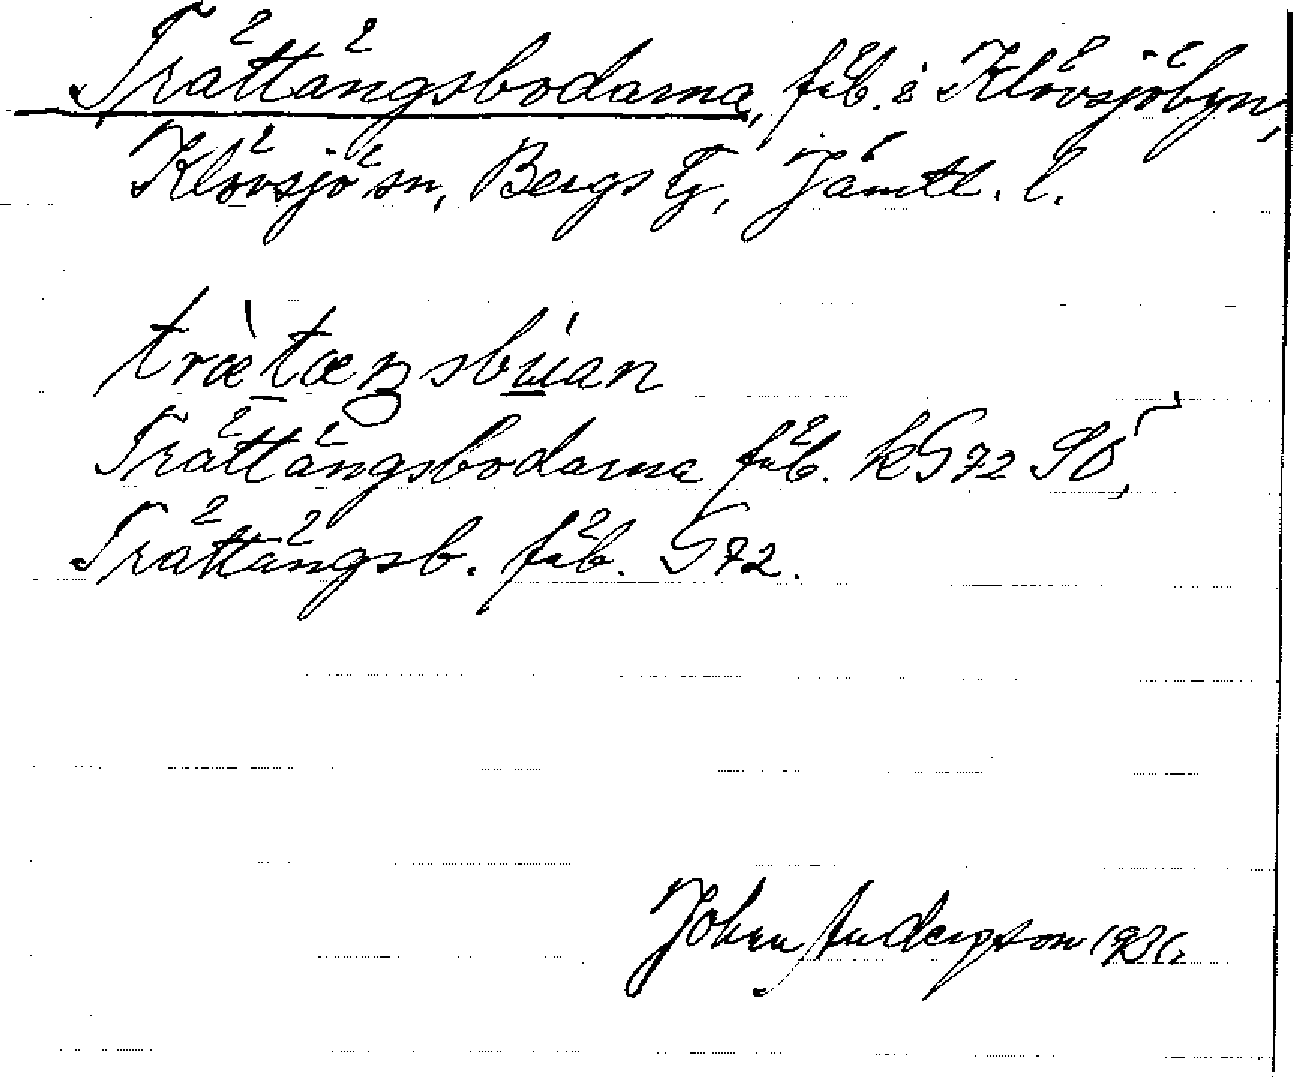 Trättängsbodarna, fäb. i Klövsjöbyn,
Klövsjö sn, Bergs tg, Jämtl. l.
trætæŋsbuan
Trättängsbodarna fäb. kG72 SO,
Trättängsb. fäb. G72.
Johan Andersson 1936